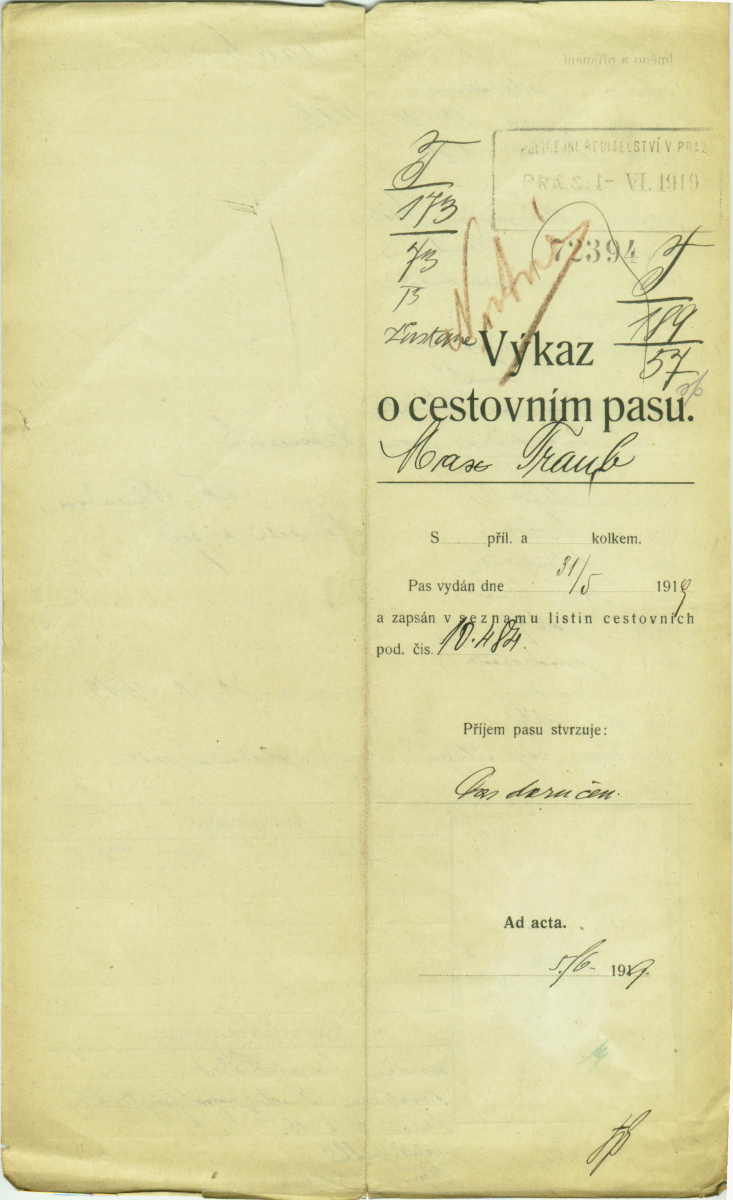 Jméno a příjmení
POLICEJNÍ ŘEDITELSTVÍ V PRAZE
PRAES. 1- VI. 1919
72394
T
173
73
T
189
57
Výkaz
o cestovním pasu.
Max Traub
S příl. a kolkem.
Pas vydán dne 31/5 1919
a zapsán v seznamu listin cestovních
pod. čís. 10.484.
Příjem pasu stvrzuje:
Pas doručen.
Ad acta.
5/6- 1919.